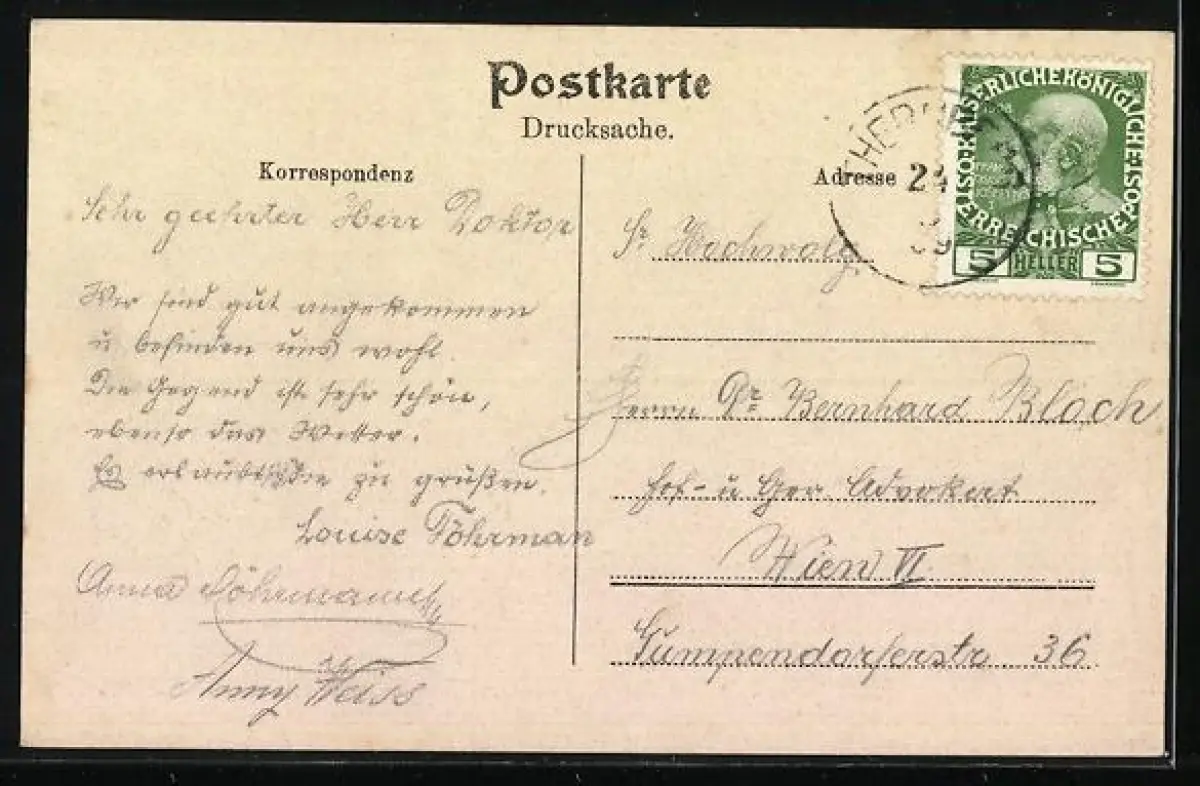 Postkarte
Drucksache.
Korrespondenz
Sehr geehrter Herr Doktor
Wir sind gut angekommen
u befinden uns wohl.
Die Gegend ist sehr schön,
ebenso das Wetter.
Es erlaubt sich Sie zu grüßen.
Louise Föhrman
Anna
Anny Weiss
Adresse
Sr Hochwolg
Herrn Dr Bernhard Bloch
Hof- u Ger Advokat
Wien VI
Gumpendorferstr 36
KAISERLICHEKÖNIGLICHE ÖSTERREICHISCHE POST
5 HELLER 5
24
09